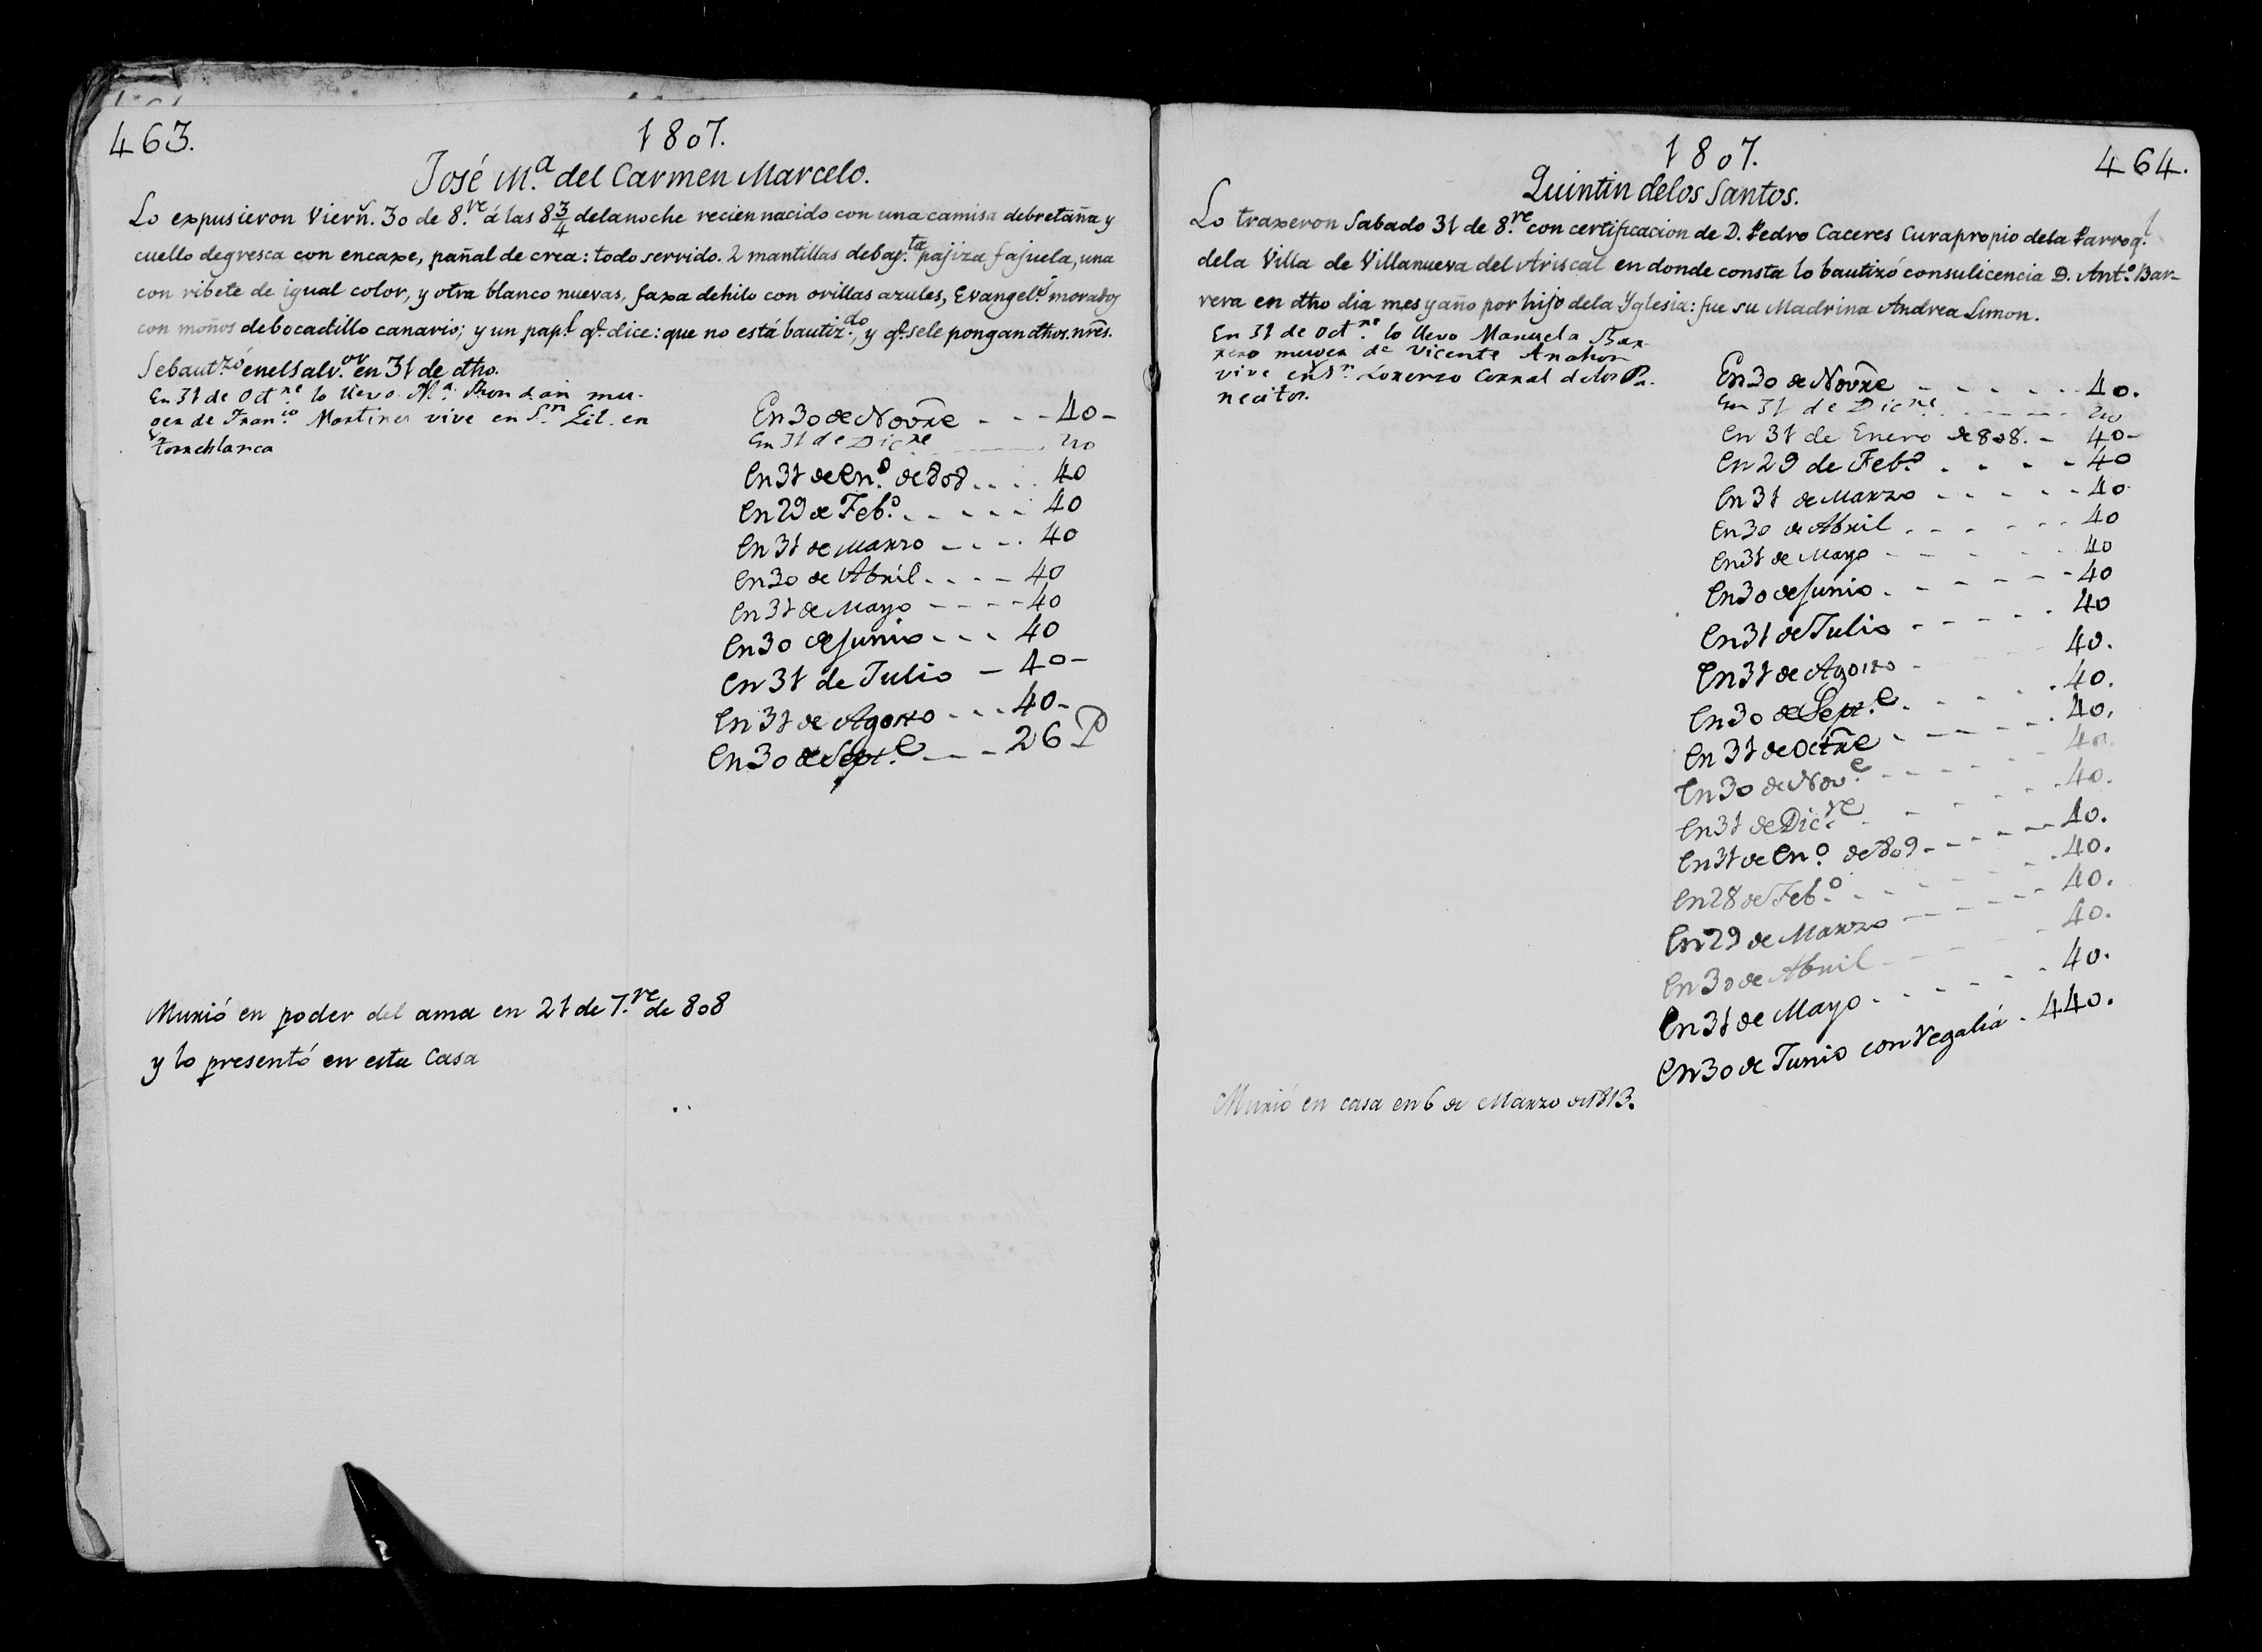 463.
1807.
José M.ª del Carmen Marcelo.
Lo expusieron Viern.s 30 de 8.re á las 8 3/4 delanoche recien nacido con una camisa debretaña y
cuello degresca con encaxe, pañal de crea: todo servido. 2 mantillas debay.ta pajiza fajuela, una
con ribete de igual color, y otra blanco nuevas, faxa dehilo con orillas azules, Evangel.s morados
con moños debocadillo canario; y un pap.l q.e dice: que no está bautiz.do, y q.e sele pongan dthos. nres.
Sebaut.zó enelSalv.or en 31 de dtho.
En 31 de Oct.re lo llevo M.a Rondan mu-
ger de Fran.co Martinez vive en S.n Gil en
torreblanca
En 30 de Novre - - - 40 -
En 31 de Dicre 40
En 31 de En.o de 808 . . . . 40
En 29 de Feb.o . - - - - - 40
En 31 de Marzo - - - . 40
En 30 de Abril . - - - 40
En 31 de Mayo - - - - 40
En 30 de Junio - - - 40
En 31 de Julio - 40 -
En 31 de Agosto - - - 40 -
En 30 de Sept.e - - - 26 P
Murió en poder del ama en 21 de 7.re de 808
y lo presentó en esta Casa
1807.
464.
Quintin delos Santos.
Lo traxeron Sabado 31 de 8.re con certificacion de D. Pedro Caceres Curapropio dela Parroq.l
dela Villa de Villanueva del Ariscal en donde consta lo bautizó consulicencia D. Ant.o Bar-
rera en dtho dia mes y año por hijo dela Yglesia: fue su Madrina Andrea Limon.
En 31 de Oct.re lo llevo Manuela Bar-
rero muger de Vicente
vive en S.n Lorenzo Corral delos Pa-
necitos.
En 30 de Novre - - - - - - 40.
En 31 de Dicre - - - - 40
En 31 de Enero de 808. - 40 -
En 29 de Feb.o . - - - 40
En 31 de Marzo - - - - - 40
En 30 de Abril . - - - - - 40
En 31 de Mayo - - - - 40
En 30 de Junio . - - - - - 40
En 31 de Julio - - - - - . 40
En 31 de Agosto - 40.
En 30 de Sept.e . - - - . 40.
En 31 de Octre - - - - - . 40.
En 30 de Nov.e - - - - - - 40.
En 31 de Dic.re . - - - - - 40.
En 31 de En.o de 809 - - - - - - 40.
En 28 de Feb.o . - - - - - . 40.
En 29 de Marzo - - - - - - 40.
En 30 de Abril - - - - 40.
En 31 de Mayo . - - - - - 40.
En 30 de Junio con Regalia . 440.
Murió en casa en 6 de Marzo de 1813.